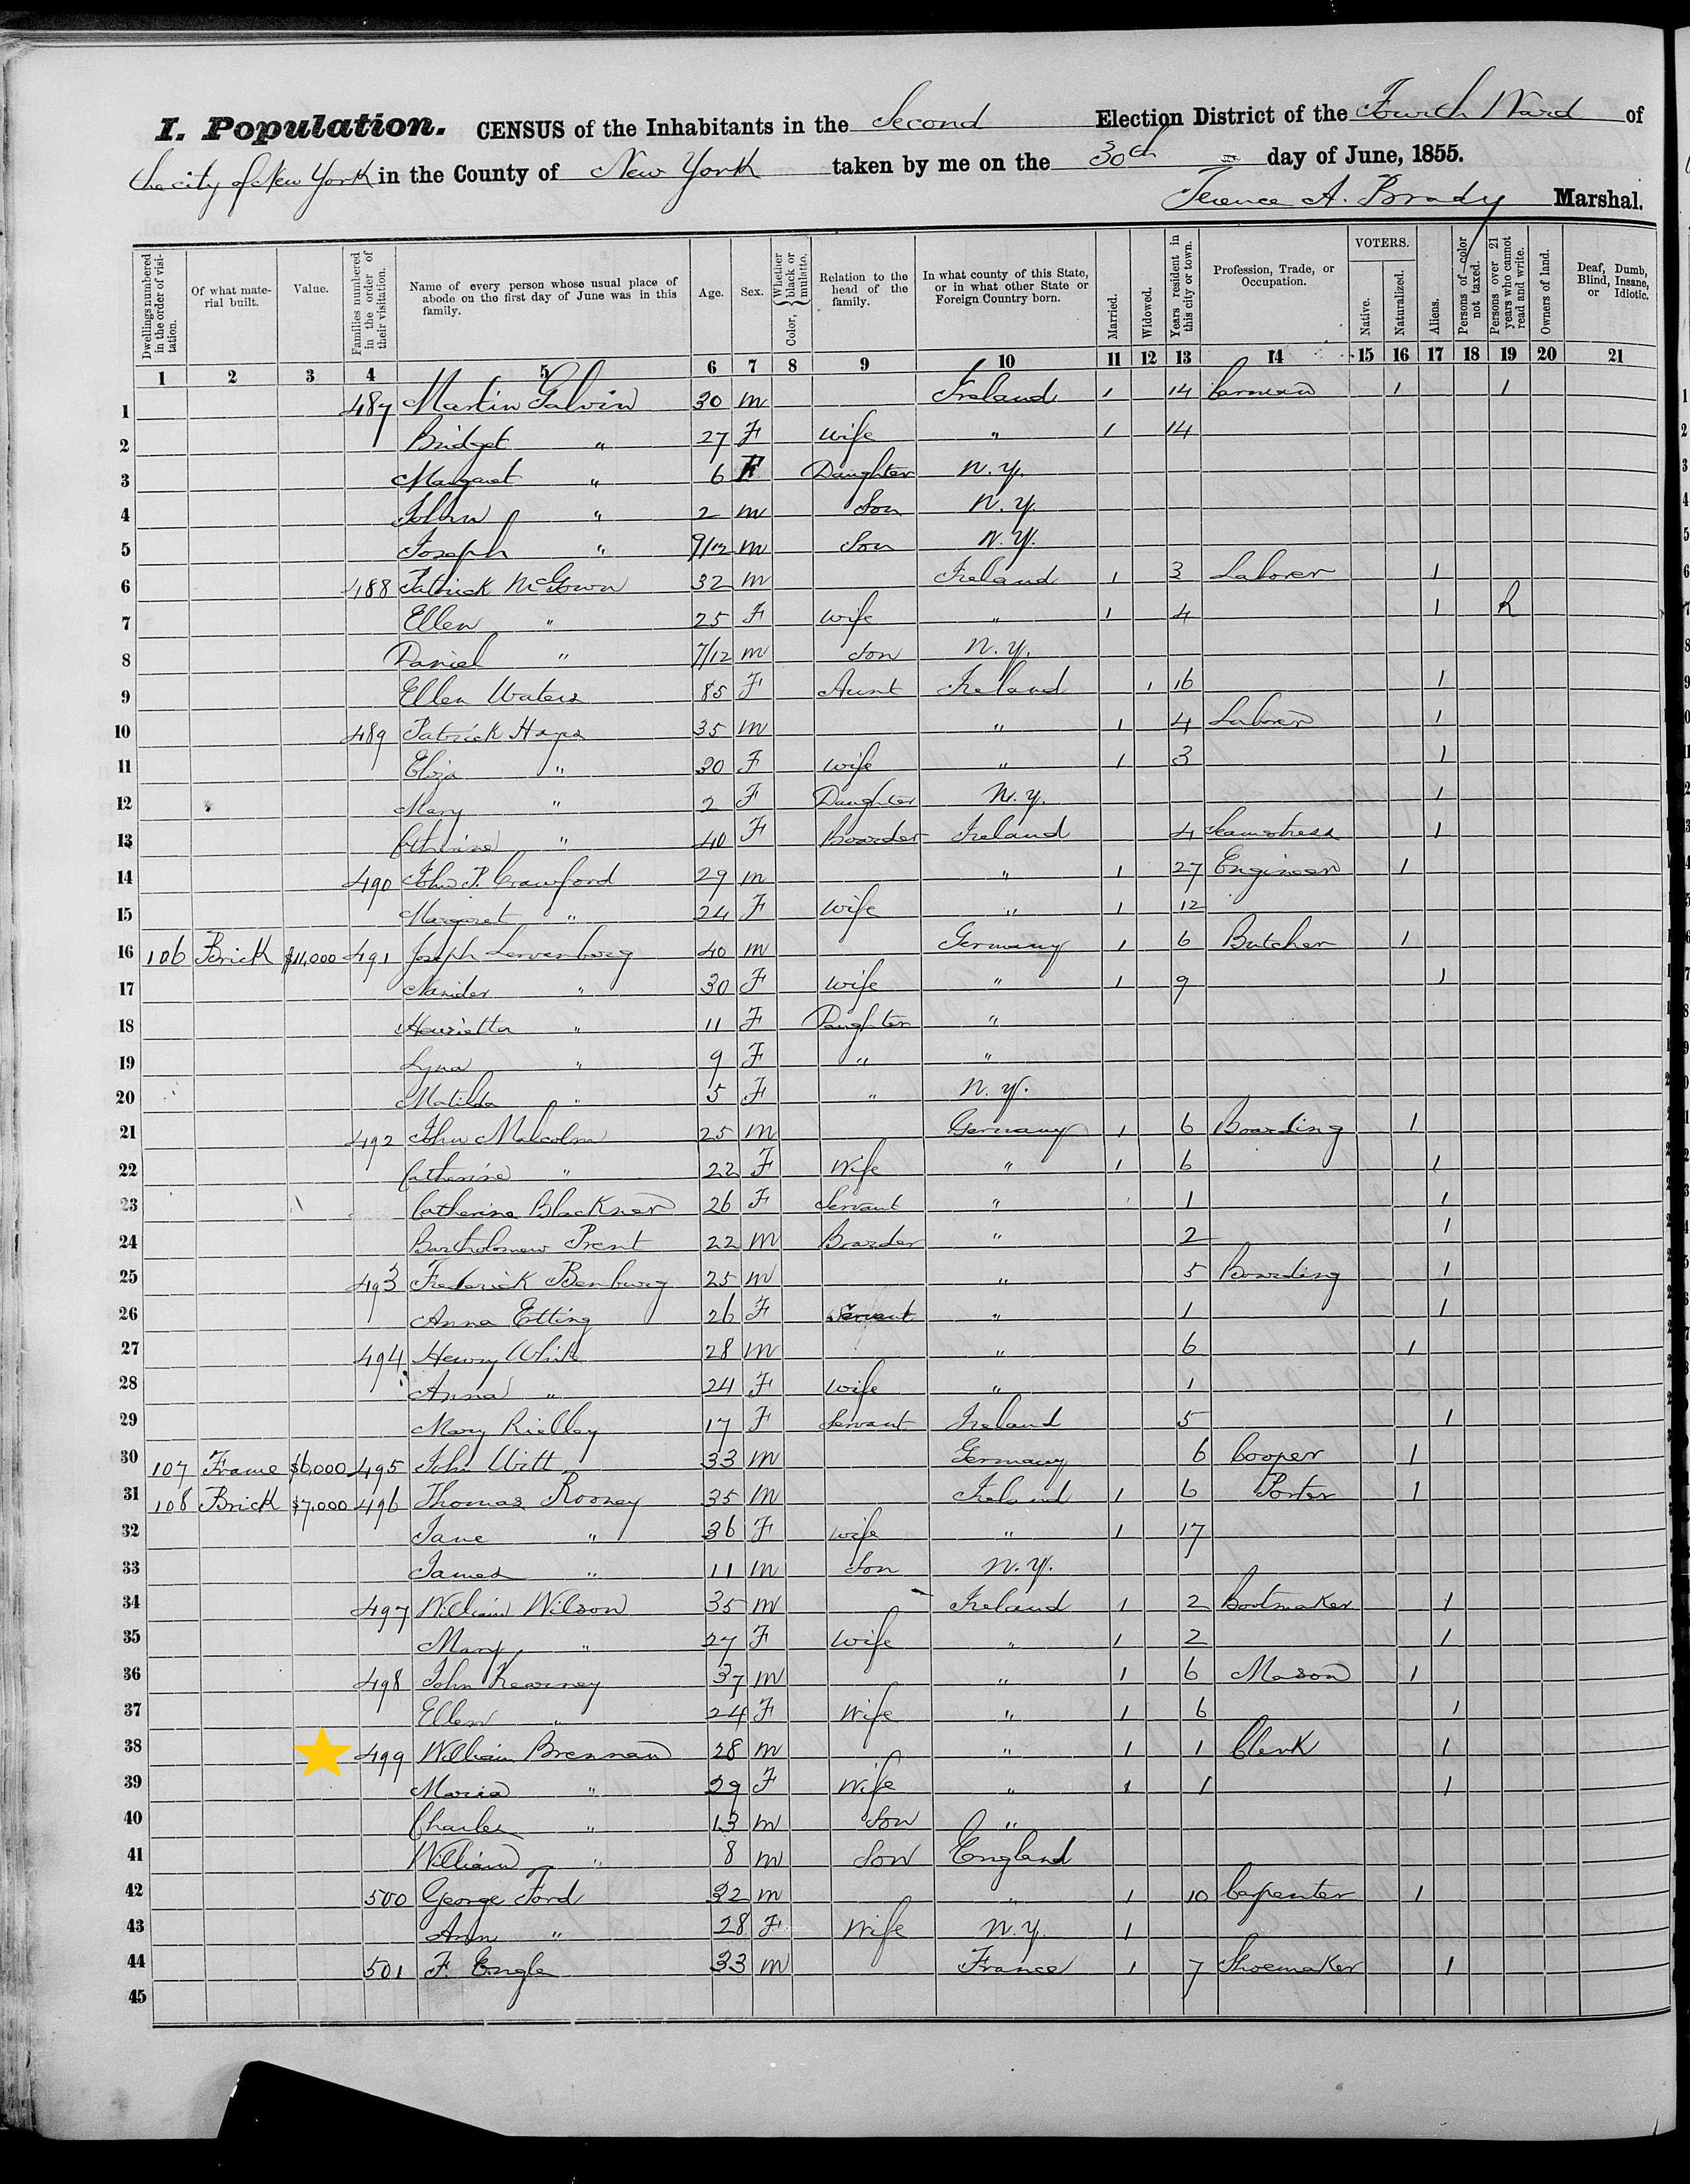 I. Population. CENSUS of the Inhabitants in the Second Election District of the Fourth Ward of
the city of New York in the County of New York taken by me on the 30th day of June, 1855.
Terence A. Brady Marshal.
Dwellings numbered in the order of visitation. Of what material built. Value. Families numbered in the order of their visitation. Name of every person whose usual place of abode on the first day of June was in this family. Age. Sex. Color, Whether black or mulatto. Relation to the head of the family. In what county of this State, or in what other State or Foreign Country born. Married. Widowed. Years resident in this city or town. Profession, Trade, or Occupation. VOTERS. Native. Naturalized. Aliens. Persons of color not taxed. Persons over 21 years who cannot read and write. Owners of land. Deaf, Dumb, Blind, Insane, or Idiotic.
1 2 3 4 5 6 7 8 9 10 11 12 13 14 15 16 17 18 19 20 21
1 487 Martin Galvin 30 m Ireland 1 14 Carman 1 1
2 Bridget " 27 F Wife " 1 14
3 Margaret " 6 F Daughter N.Y.
4 John " 2 m Son N.Y.
5 Joseph " 9/12 m Son N.Y.
6 488 Patrick McGown 32 m Ireland 1 3 Laborer 1
7 Ellen " 25 F Wife " 1 4 1
8 Daniel " 7/12 m Son N.Y.
9 Ellen Waters 85 F Aunt Ireland 1 16 1
10 489 Patrick Hays 35 m " 1 4 Laborer 1
11 Eliza " 30 F Wife " 1 3 1
12 Mary " 2 F Daughter N.Y. 1
13 Catherine " 40 F Boarder Ireland 4 Seamstress 1
14 490 John P. Crawford 29 m " 1 27 Engineer 1
15 Margaret " 24 F Wife " 1 12
16 106 Brick $11,000 491 Joseph Lervenburg 40 m Germany 1 6 Butcher 1
17 " 30 F Wife " 1 9 1
18 Henrietta " 11 F Daughter "
19 Lyna " 9 F " "
20 Matilda " 5 F " N.Y.
21 492 John Malcolm 25 m Germany 1 6 Boarding 1
22 Catherine " 22 F Wife " 1 6 1
23 Catherine Blacksner 26 F Servant " 1 1
24 Bartholomew Prent 22 m Boarder " 2 1
25 493 Frederick Benburg 25 m " 5 Boarding 1
26 Anna Etting 26 F Servant " 1 1
27 494 Henry White 28 m " 6 1
28 Anna " 24 F Wife " 1
29 Mary Rielley 17 F Servant Ireland 5 1
30 107 Frame $6,000 495 John Witt 33 m Germany 6 Cooper 1
31 108 Brick $7,000 496 Thomas Rooney 35 m Ireland 1 6 Porter 1
32 Jane " 36 F Wife " 1 17
33 James " 11 m Son N.Y.
34 497 William Wilson 35 m Ireland 1 2 Bootmaker 1
35 Mary " 27 F Wife " 1 2 1
36 498 John Kearney 37 m " 1 6 Mason 1
37 Ellen " 24 F Wife " 1 6 1
38 499 William Brennan 28 m " 1 1 Clerk 1
39 Maria " 29 F Wife " 1 1 1
40 Charles " 13 m Son "
41 William " 8 m Son England
42 500 George Ford 32 m " 1 10 Carpenter 1
43 Ann " 28 F Wife N.Y. 1
44 501 F. Engle 33 m France 1 7 Shoemaker 1
45